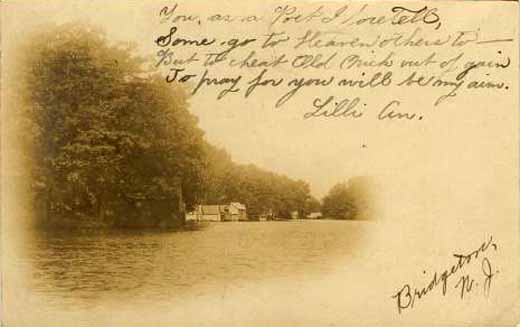 You, as a Poet I love Tell,
Some go to Heaven others to —
But to cheat Old Nick out of gain
To pray for you will be my aim.
Lilli An.
Bridgeton,
N. J.